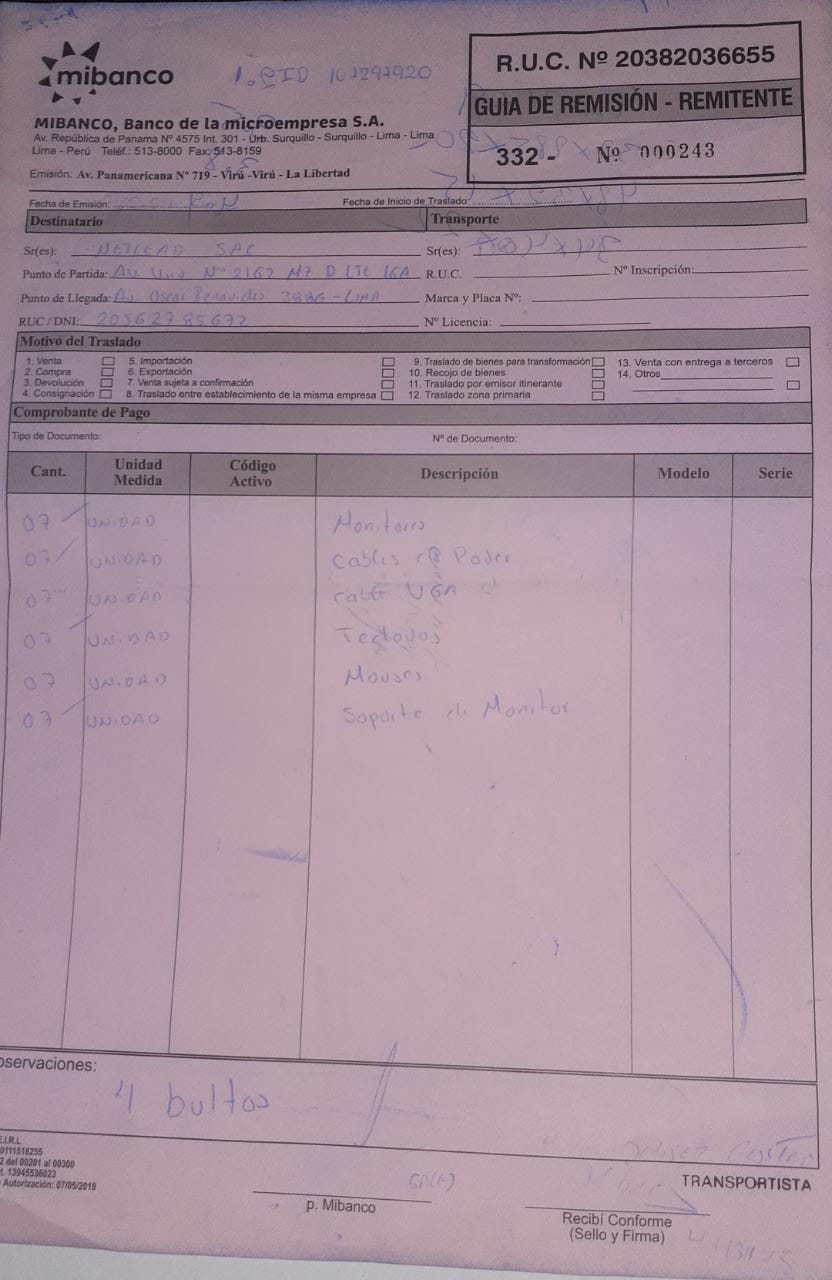 mibanco
R.U.C. Nº 20382036655
GUIA DE REMISIÓN - REMITENTE
332 - Nº 000243
MIBANCO, Banco de la microempresa S.A.
Av. República de Panama Nº 4575 Int. 301 - Urb. Surquillo - Surquillo - Lima - Lima
Lima - Perú Teléf.: 513-8000 Fax: 513-8159
Emisión: Av. Panamericana Nº 719 - Virú -Virú - La Libertad
Fecha de Emisión: Fecha de Inicio de Traslado:
Destinatario Transporte
Sr(es): SAC Sr(es):
Punto de Partida: Av. Nº 2162 Mz D LTE 16A R.U.C. Nº Inscripción:
Punto de Llegada: Av. Oscar Benavides - LIMA Marca y Placa Nº:
RUC / DNI: 20562785672 Nº Licencia:
Motivo del Traslado
1. Venta 5. Importación 9. Traslado de bienes para transformación 13. Venta con entrega a terceros
2. Compra 6. Exportación 10. Recojo de bienes 14. Otros
3. Devolución 7. Venta sujeta a confirmación 11. Traslado por emisor itinerante
4. Consignación 8. Traslado entre establecimiento de la misma empresa 12. Traslado zona primaria
Comprobante de Pago
Tipo de Documento: Nº de Documento:
Cant. Unidad Medida Código Activo Descripción Modelo Serie
07 UNIDAD Monitores
07 UNIDAD Cables de Poder
07 UNIDAD cable VGA
07 UNIDAD Teclados
07 UNIDAD Mouses
07 UNIDAD Soporte de Monitor
bservaciones:
4 bultos
E.I.R.L
0111518255
2 del 00201 al 00300
t. 13945536023
Autorización: 07/05/2019
TRANSPORTISTA
p. Mibanco
Recibí Conforme
(Sello y Firma)